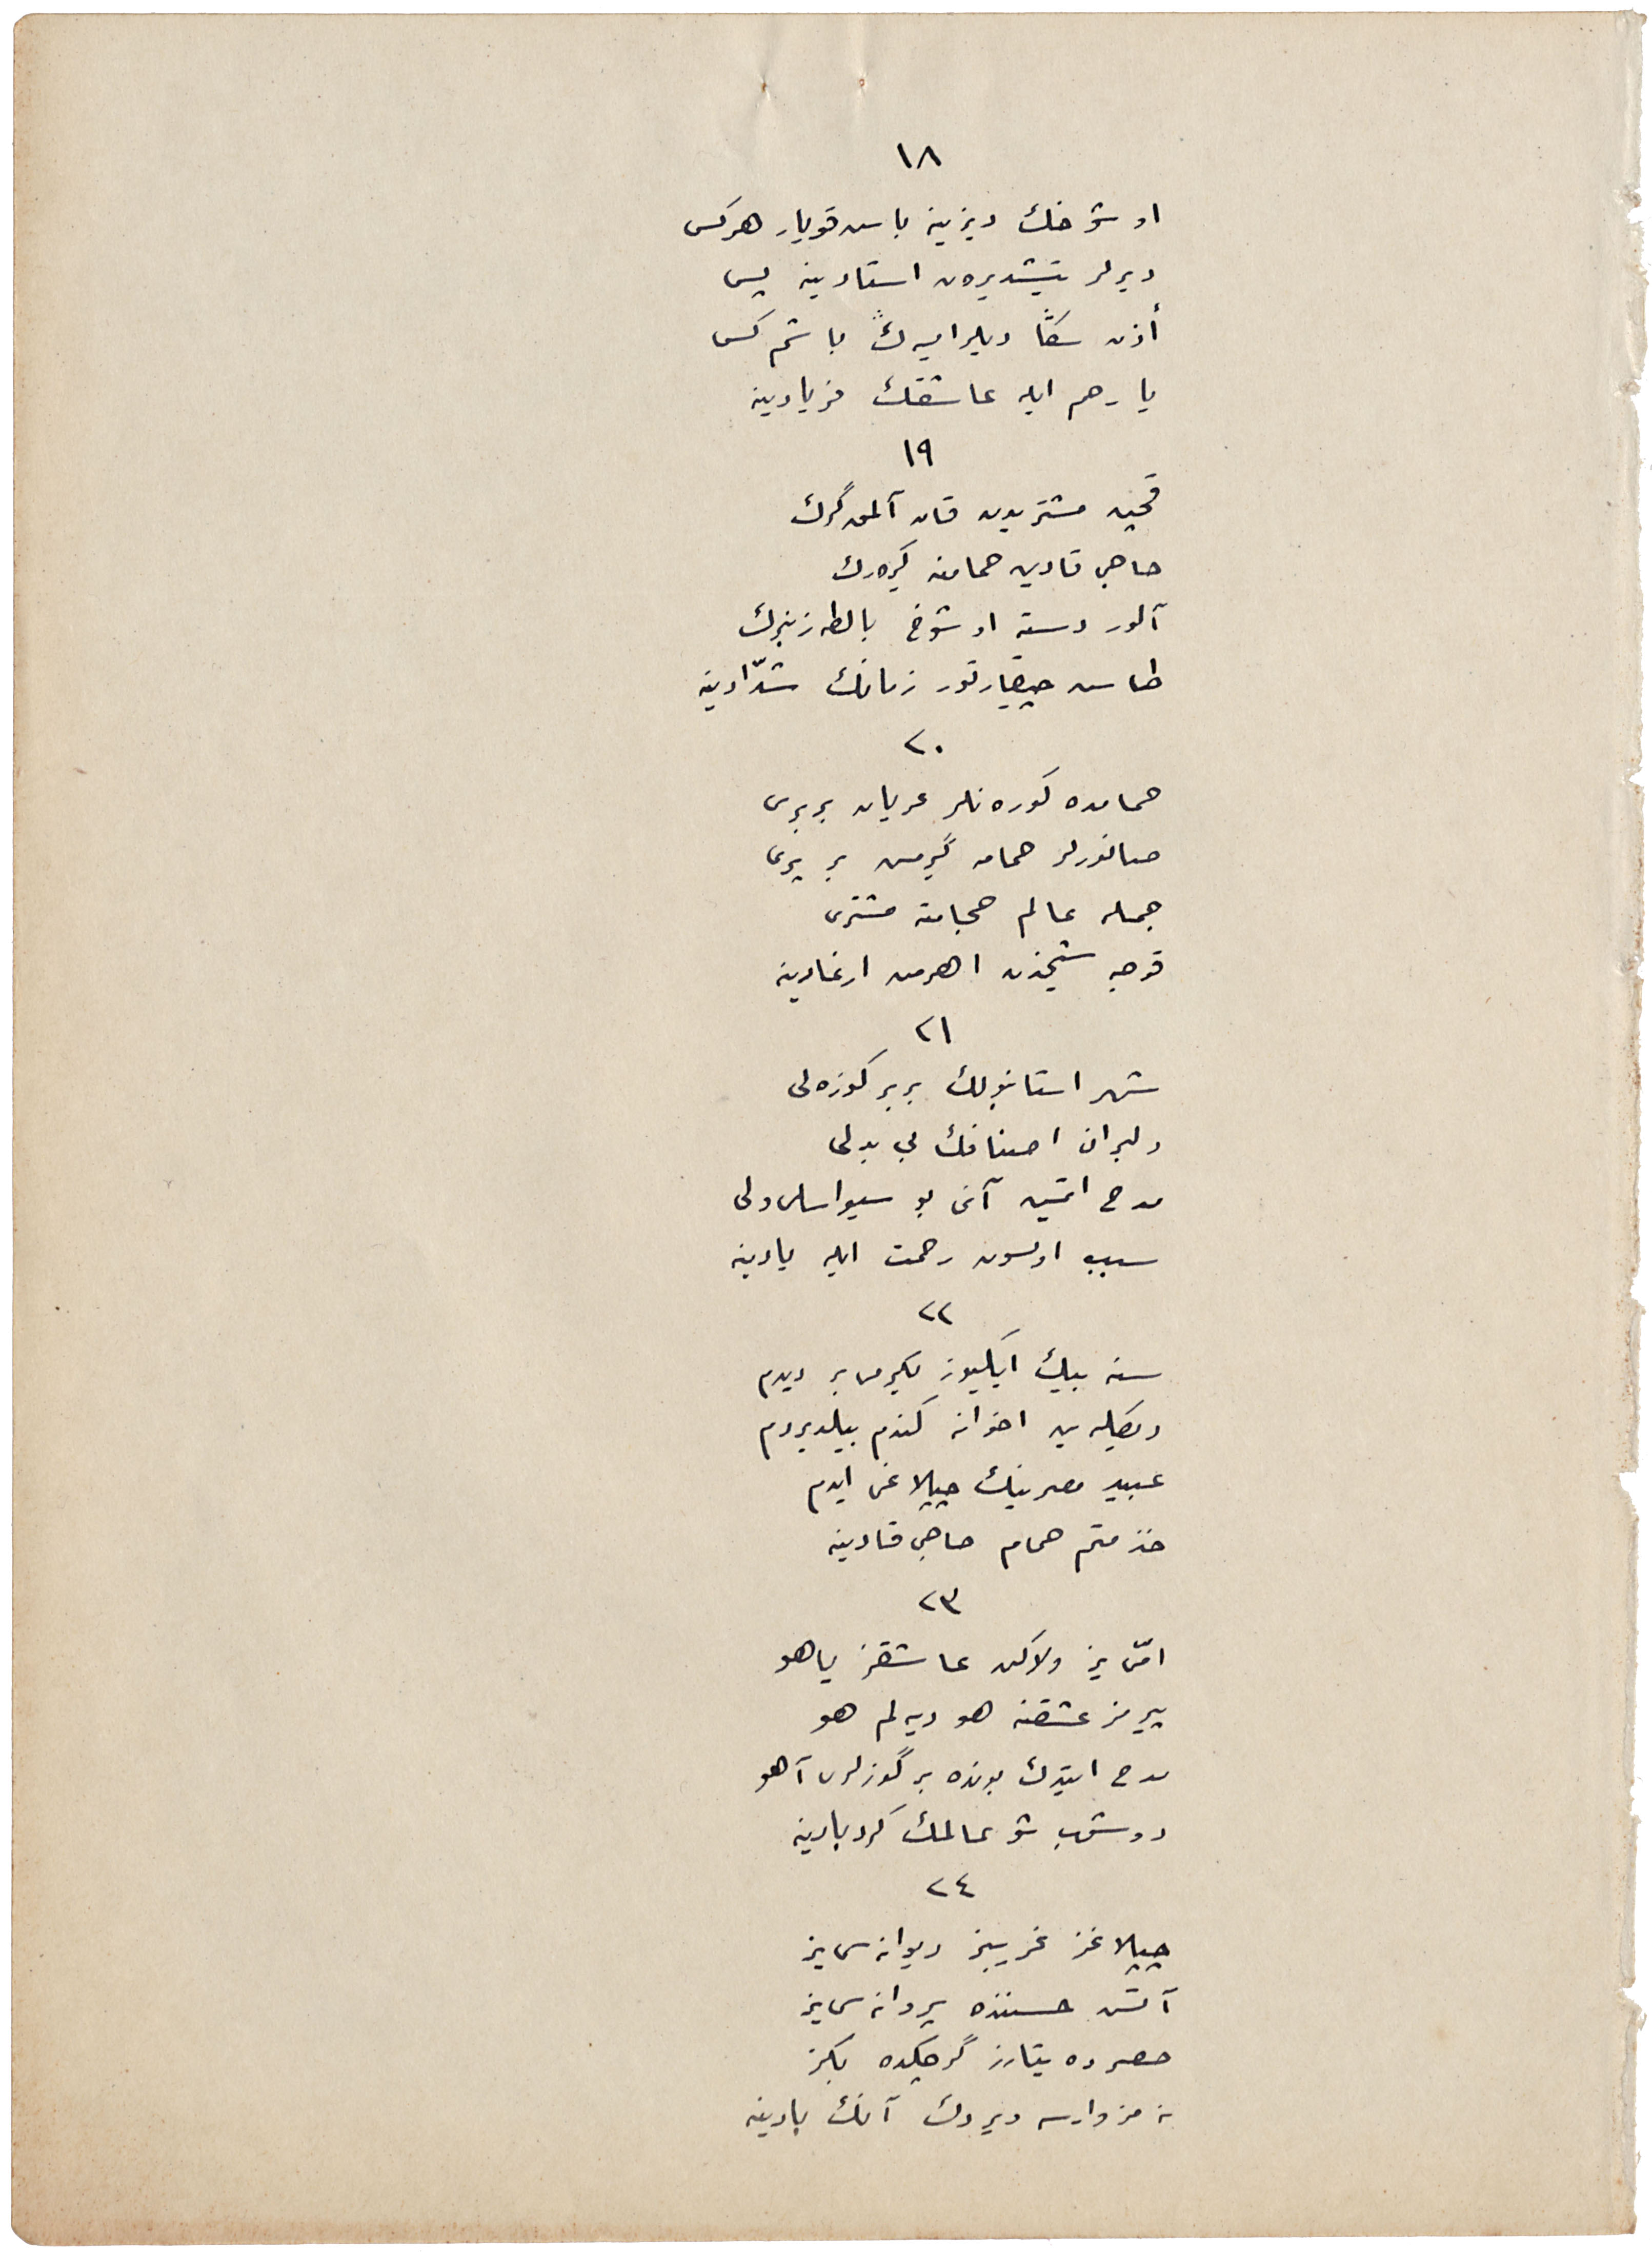 ١٨
او شوخك ديزينه باس قويار هركس
ديرلر يتيشديرەن استادينه پس
أذن سكا ديلر ايسەڭ باشم كس
يا رحم ايله عاشقك فريادينه
١٩
قحبه مشتريدن قان آلمق گرك
حاجى قادين حمامنه گيرەرك
آلور دسته او شوخ بالطه زنبرك
طاس چيقارتور زمانك شدّادينه
٢٠
حمامده كوره نلر عريان بربرى
صانورلر حمامه گيرمس بر پرى
جمله عالم حجامته مشترى
قوجه شيخدن اهرمن ارغادينه
٢١
شهر استانبولك بربر كوزەلى
دلبران اصنافك بى بدلى
مدح اتمسين آنى بو سيواسلى ولى
سبب اولسون رحمت ايله يادينه
٢٢
سنه بيك ايكيوز يكيرمى بر ديدم
وصيله سن اخوانه كندم بيلديردم
عبيد مصرينك چيپلاغى ايدم
خذمتم حمام حاجى قادينه
٢٣
امّى يز ولاكن عاشقز ياهو
پيرمز عشقنه هو ديه لم هو
مدح ايتدك بونده بر گوزلرى آهو
دوشوب شو عالمك گردبادينه
٢٤
چيپلاغز غريبز ديوانه سى يز
آتش حسننده پروانه سى يز
حصرده يتارز گرچكده بكز
نه مز وارسه ويردك آنك يادينه